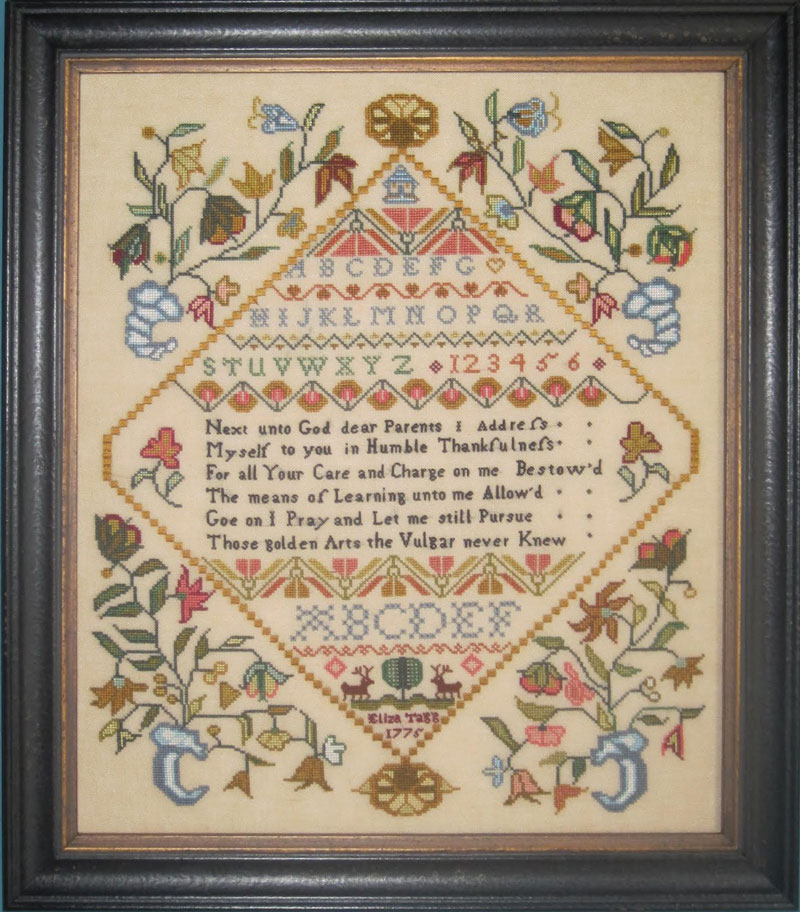 ABCDEFG
HIJKLMNOPQR
STUVWXYZ 123456
Next unto God dear Parents I Addreſs
Myself to you in Humble Thankfulneſs
For all Your Care and Charge on me Bestow'd
The means of Learning unto me Allow'd
Goe on I Pray and Let me still Pursue
Those golden Arts the Vulgar never Knew
ABCDEF
Eliza Tagg
1775